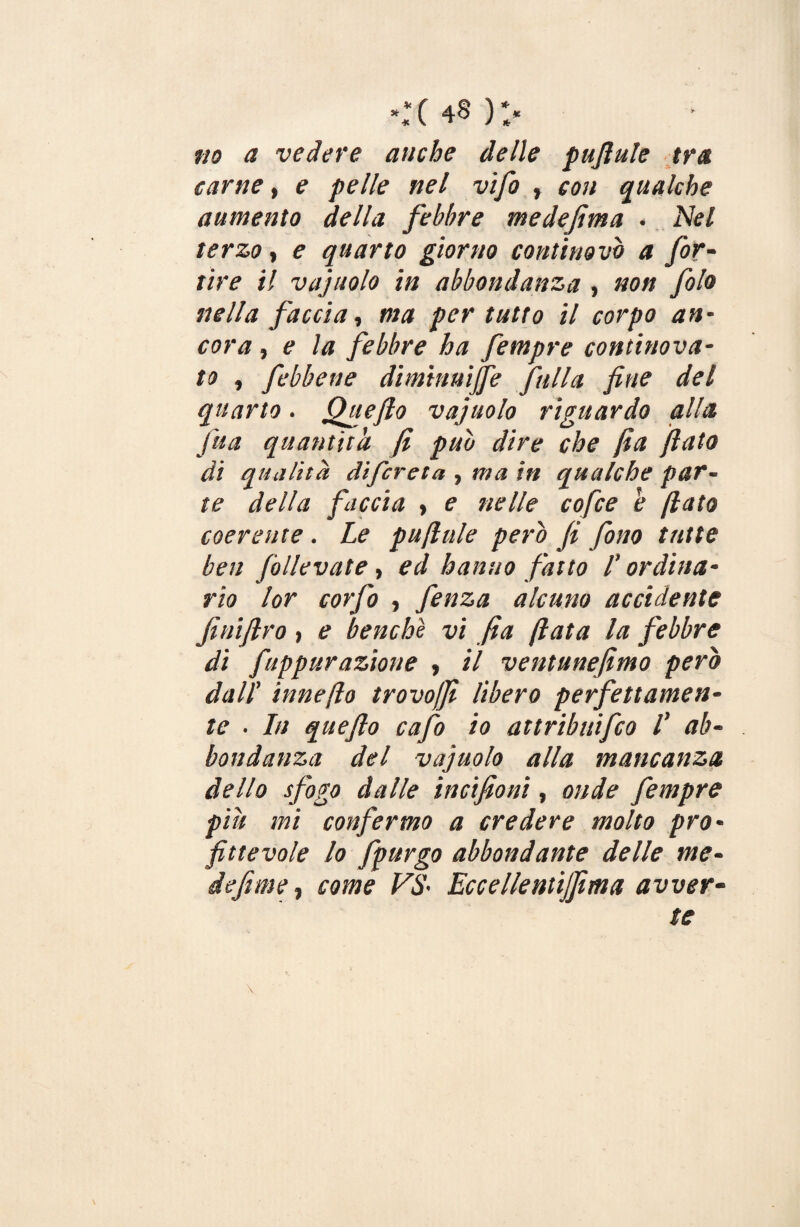 *⁎*( 48 )*⁎*
no a vedere anche delle puſtule tra
carne, e pelle nel viſo, con qualche
aumento della febbre medeſima. Nel
terzo, e quarto giorno continovò a ſor-
tire il vajuolo in abbondanza, non ſolo
nella faccia, ma per tutto il corpo an-
cora, e la febbre ha ſempre continova-
to, ſebbene diminuiſſe ſulla fine del
quarto. Queſto vajuolo riguardo alla
ſua quantità ſi può dire che ſia ſtato
di qualità diſcreta, ma in qualche par-
te della faccia, e nelle coſce è ſtato
coerente. Le puſtule però ſi ſono tutte
ben ſollevate, ed hanno fatto l' ordina-
rio lor corſo, ſenza alcuno accidente
ſiniſtro, e benchè vi ſia ſtata la febbre
di ſuppurazione, il ventuneſimo però
dall' inneſto trovoſſi libero perfettamen-
te. In queſto caſo io attribuiſco l' ab-
bondanza del vajuolo alla mancanza
dello sfogo dalle inciſioni, onde ſempre
più mi confermo a credere molto pro-
fittevole lo ſpurgo abbondante delle me-
deſime, come VS. Eccellentiſſima avver-
te